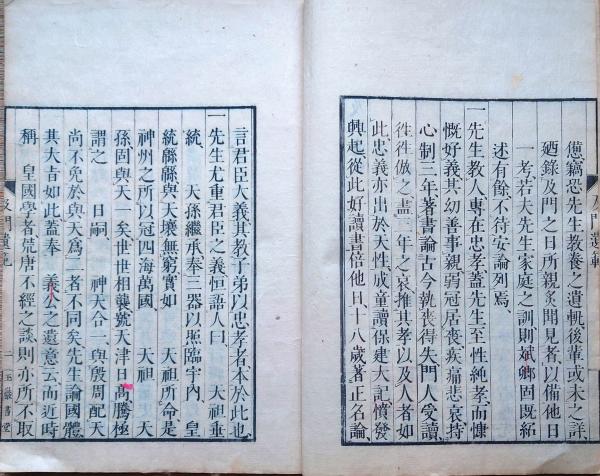 憊竊恐先生教養之遺軌後輩或未之詳
廼錄及門之日所親炙聞見者以備他日
一考若夫先生家庭之訓則斌卿固既紹
述有餘不待安論列焉
一先生教人專在忠孝蓋先生至性純孝而慷
慨好義其幼善事親弱冠居喪疾痛悲哀持
心制三年著書論古今執喪得失門人受讀
徃徃倣之盡三年之哀推其孝以及人者如
此忠義亦出於天性成童讀保建大記憤發
興起從此好讀書倍他日十八歲著正名論
及門遺範
言君臣大義其教子弟以忠孝者本於此也
一先生尤重君臣之義恒語人曰 大祖垂
統 大孫繼承奉三器以照臨宇內 皇
統緜緜與天壤無窮實如 天祖所命是
神州之所以冠四海萬國 天祖 天
孫固與天一矣世世相襲號天津日高騰極
謂之 日嗣 神天合一與殷周配天
尚不免於與天為二者不同矣先生論國體
其大旨如此蓋奉 義公之遺意云而近時
稱 皇國學者荒唐不經之談則亦所不取
及門遺範
二
玉巖書堂